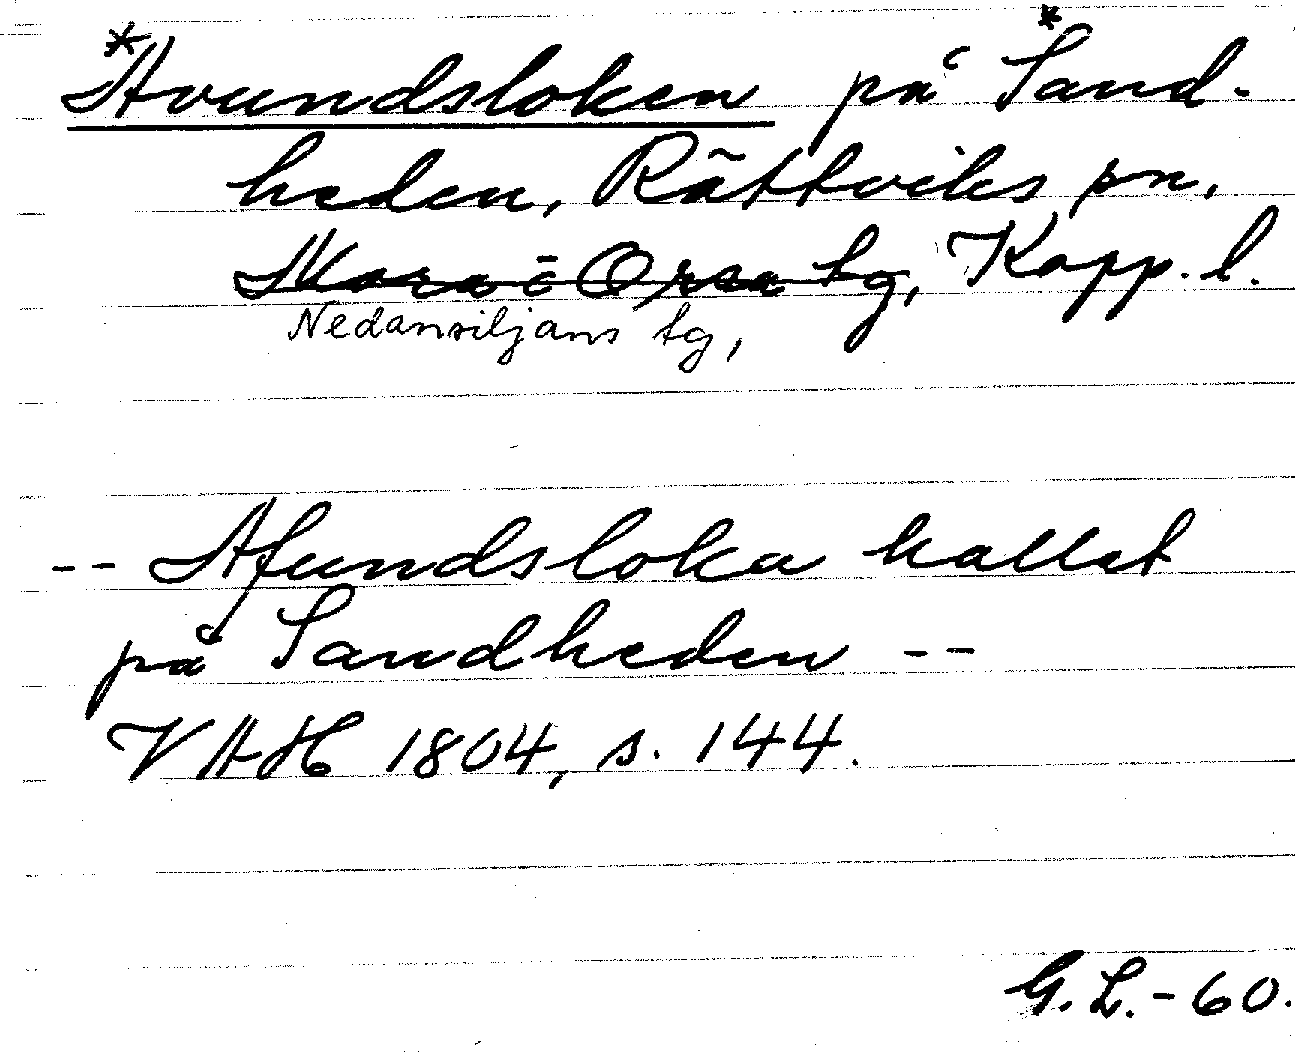 *Avundsloken på *Sand-
heden, Rättviks sn,
Mora o Orsa tg, Kopp. l.
Nedansiljans tg,
-- Afundsloka kallat
på Sandheden --
VAH 1804, s. 144.
G.L.-60.